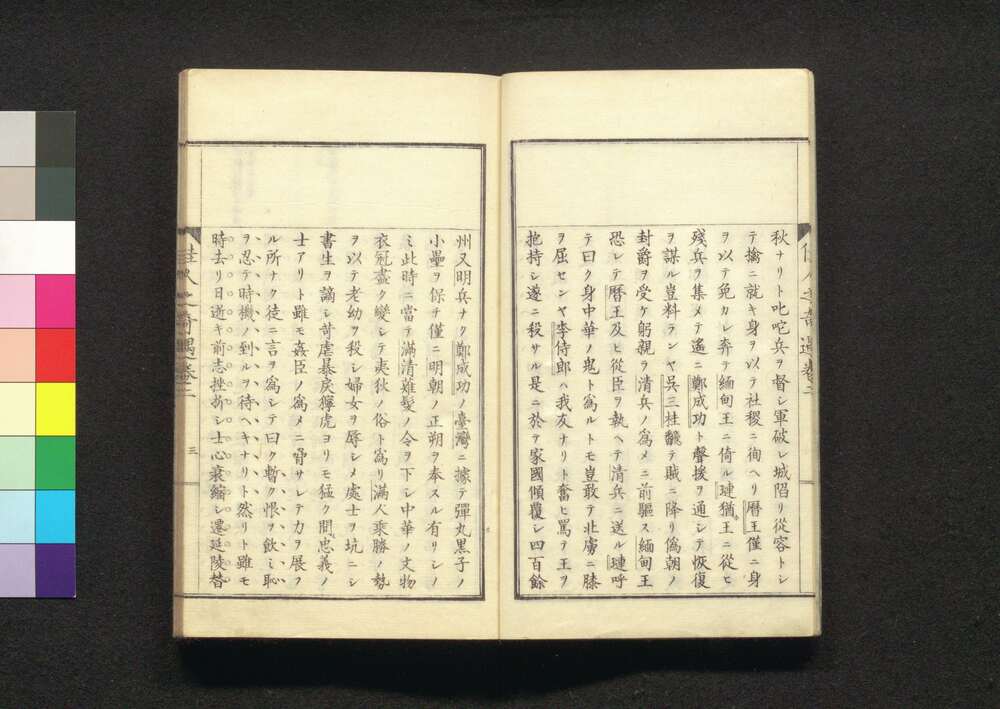 秋ナリト叱咤兵ヲ督シ軍破レ城陷リ從容トシ
テ擒ニ就キ身ヲ以テ社稷ニ徇ヘリ曆王僅ニ身
ヲ以テ免カレ奔テ緬甸王ニ倚ル璉猶王ニ從ヒ
殘兵ヲ集メテ遙ニ鄭成功ト聲援ヲ通シテ恢復
ヲ謀ル豈料ランヤ吳三桂飜テ賊ニ降リ僞朝ノ
封爵ヲ受ケ躬親ラ清兵ノ爲メニ前驅ス緬甸王
恐レテ曆王及ヒ從臣ヲ執ヘテ清兵ニ送ル璉呼
テ曰ク身中華ノ鬼ト爲ルトモ豈敢テ北虜ニ膝
ヲ屈センヤ李侍郎ハ我友ナリト奮ヒ罵テ王ヲ
抱持シ遂ニ殺サル是ニ於テ家國傾覆シ四百餘
州又明兵ナク鄭成功ノ臺灣ニ據テ彈丸黑子ノ
小壘ヲ保チ僅ニ明朝ノ正朔ヲ奉スル有リシノ
ミ此時ニ當テ滿清薙髮ノ令ヲ下シ中華ノ文物
衣冠盡ク變シテ夷狄ノ俗ト爲リ滿人乘勝ノ勢
ヲ以テ老幼ヲ殺シ婦女ヲ辱シメ處士ヲ坑ニシ
書生ヲ謫シ苛虐暴戻獰虎ヨリモ猛ク間忠義ノ
士アリト雖モ姦臣ノ爲メニ脅サレテ力ヲ展フ
ル所ナク徒ニ言ヲ爲シテ曰ク暫ク恨ヲ飮ミ恥
ヲ忍テ時機ノ到ルヲ待ヘキナリト然リト雖モ
時去リ日逝キ前志挫折シ士心衰縮シ遷延陵替
佳人之奇遇卷二
三